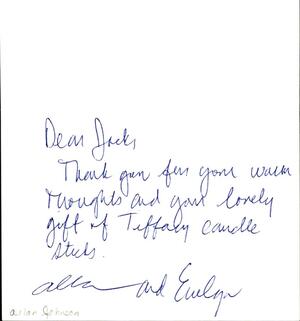 Dear Jack,
Thank you for your warm
thoughts and your lovely
gift of Tiffany candle
sticks.
Allan and Evelyn
Johnson